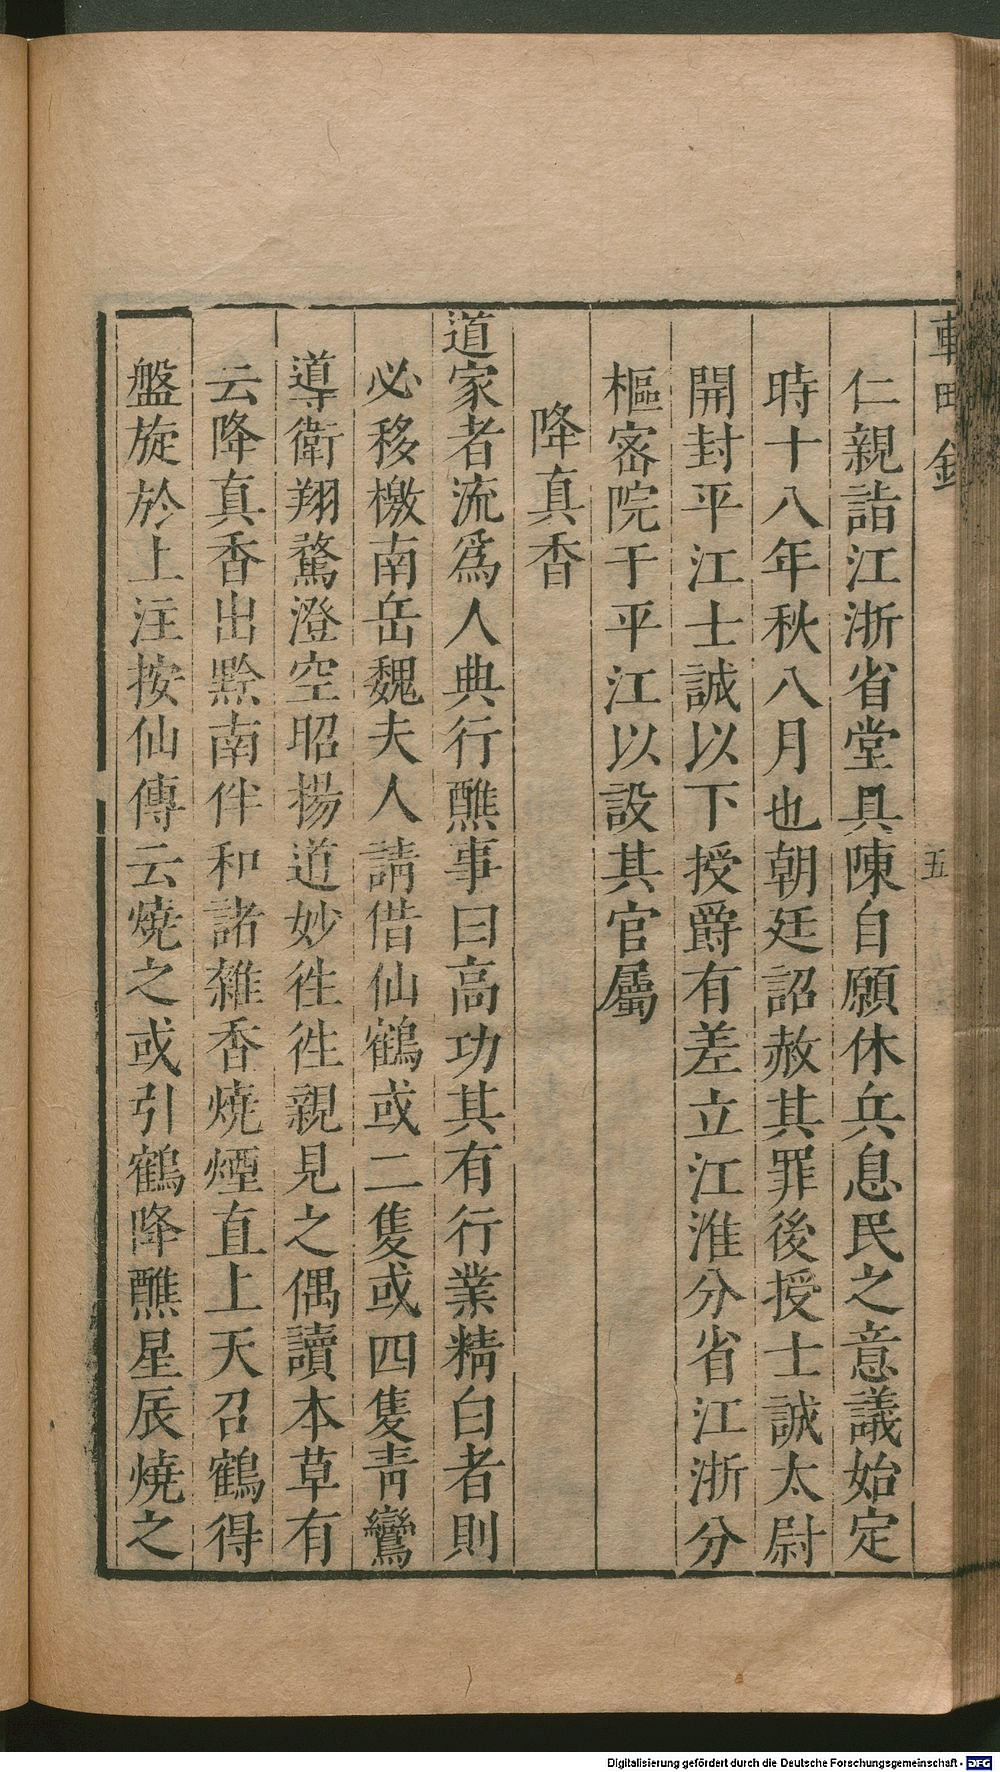 仁親詣江浙省堂具陳自願休兵息民之意議始定
時十八年秋八月也朝廷詔赦其罪後授士誠太尉
開封平江士誠以下授爵有差立江淮分省江浙分
樞密院于平江以設其官屬
降真香
道家者流爲人典行醮事曰高功其有行業精白者則
必移檄南岳魏夫人請借仙鶴或二隻或四隻青鸞
導衛翔鶩澄空昭揚道妙徃徃親見之偶讀本草有
云降真香出黔南伴和諸雜香燒煙直上天召鶴得
盤旋於上注按仙傳云燒之或引鶴降醮星辰燒之
五
Digitalisierung gefördert durch die Deutsche Forschungsgemeinschaft - DFG